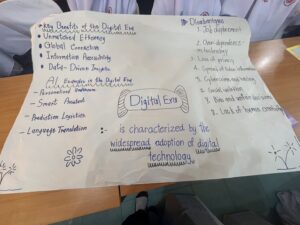 Key Benefits of the Digital Era
Unmatched Efficiency
Global Connection
Information Accessibility
Data-Driven Insights
AI Examples in the Digital Era
Personalized
Smart Assistant
Predictive Logistics
Language Translation
Digital Era
is characterized by the
widespread adoption of digital
technology
Disadvantages
1. Job displacement
2. Over-dependence
technology
3. Loss of privacy
4. Spread of false information
5. Cybercrime and hacking
6. Social isolation
7. Bias and unfair decisions
8. Lack of human